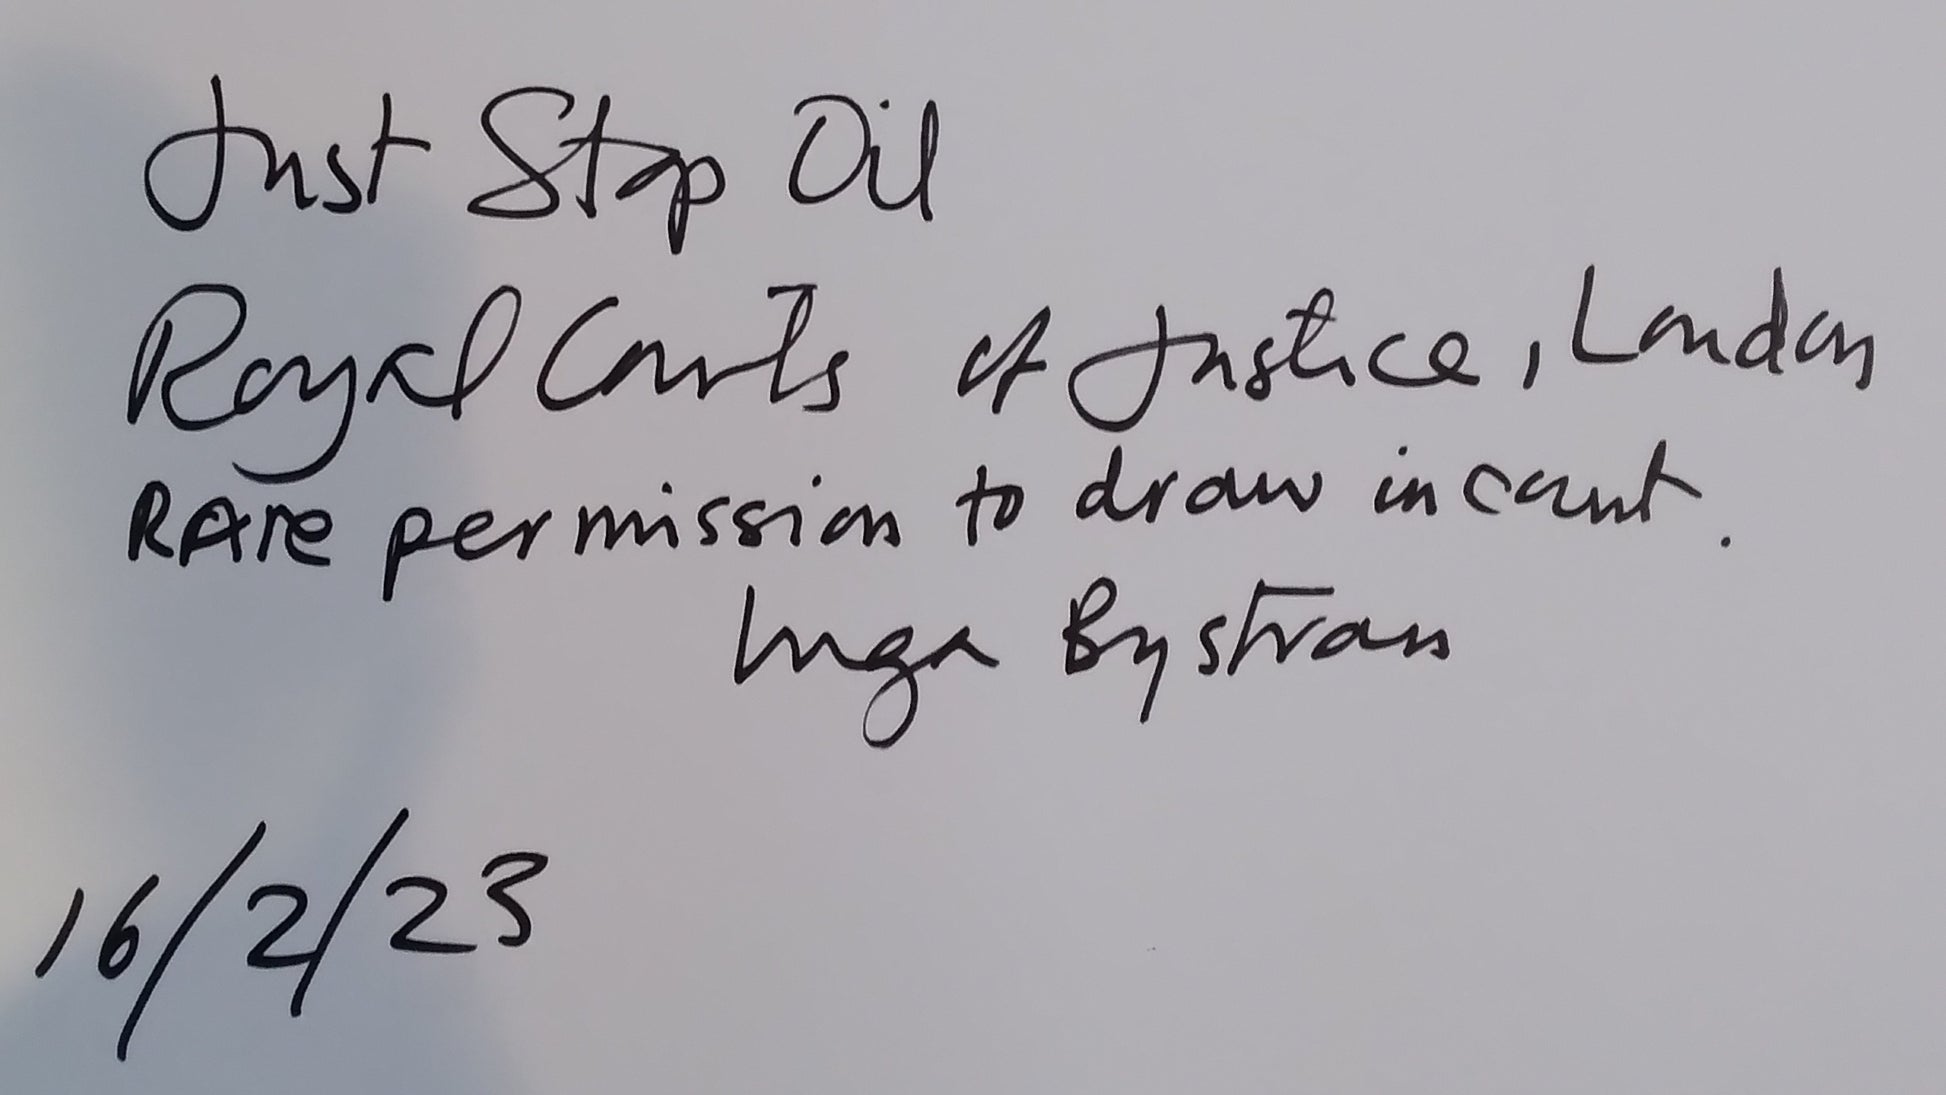 Just Stop Oil
Royal Courts of Justice, London
RARe permission to draw in court.
Inga Bystram
16/2/23